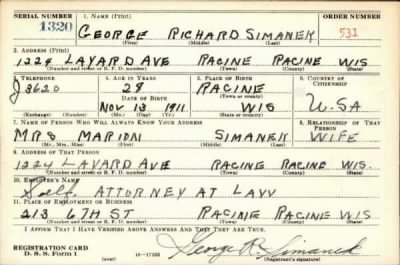 SERIAL NUMBER 1. NAME (Print) ORDER NUMBER
1320 GEORGE RICHARD SIMANEK 532
(First) (Middle) (Last)
2. ADDRESS (Print)
1224 LAYARD AVE RACINE RACINE WIS
(Number and street or R. F. D. number) (Town) (County) (State)
3. TELEPHONE 4. AGE IN YEARS 5. PLACE OF BIRTH 6. COUNTRY OF CITIZENSHIP
J 8620 28 RACINE
DATE OF BIRTH (Town or county)
NOV 13 1911 WIS U.SA
(Exchange) (Number) (Mo.) (Day) (Yr.) (State or country)
7. NAME OF PERSON WHO WILL ALWAYS KNOW YOUR ADDRESS 8. RELATIONSHIP OF THAT PERSON
MRS MARION SIMANEK WIFE
(Mr., Mrs., Miss) (First) (Middle) (Last)
9. ADDRESS OF THAT PERSON
1224 LAYARD AVE RACINE RACINE WIS.
(Number and street or R. F. D. number) (Town) (County) (State)
10. EMPLOYER'S NAME
Self ATTORNEY AT LAW
11. PLACE OF EMPLOYMENT OR BUSINESS
213 6TH ST RACINE RACINE WIS
(Number and street or R. F. D. number) (Town) (County) (State)
I AFFIRM THAT I HAVE VERIFIED ABOVE ANSWERS AND THAT THEY ARE TRUE.
REGISTRATION CARD George R. Simanek
D. S. S. Form 1 16-17105 (Registrant's signature)